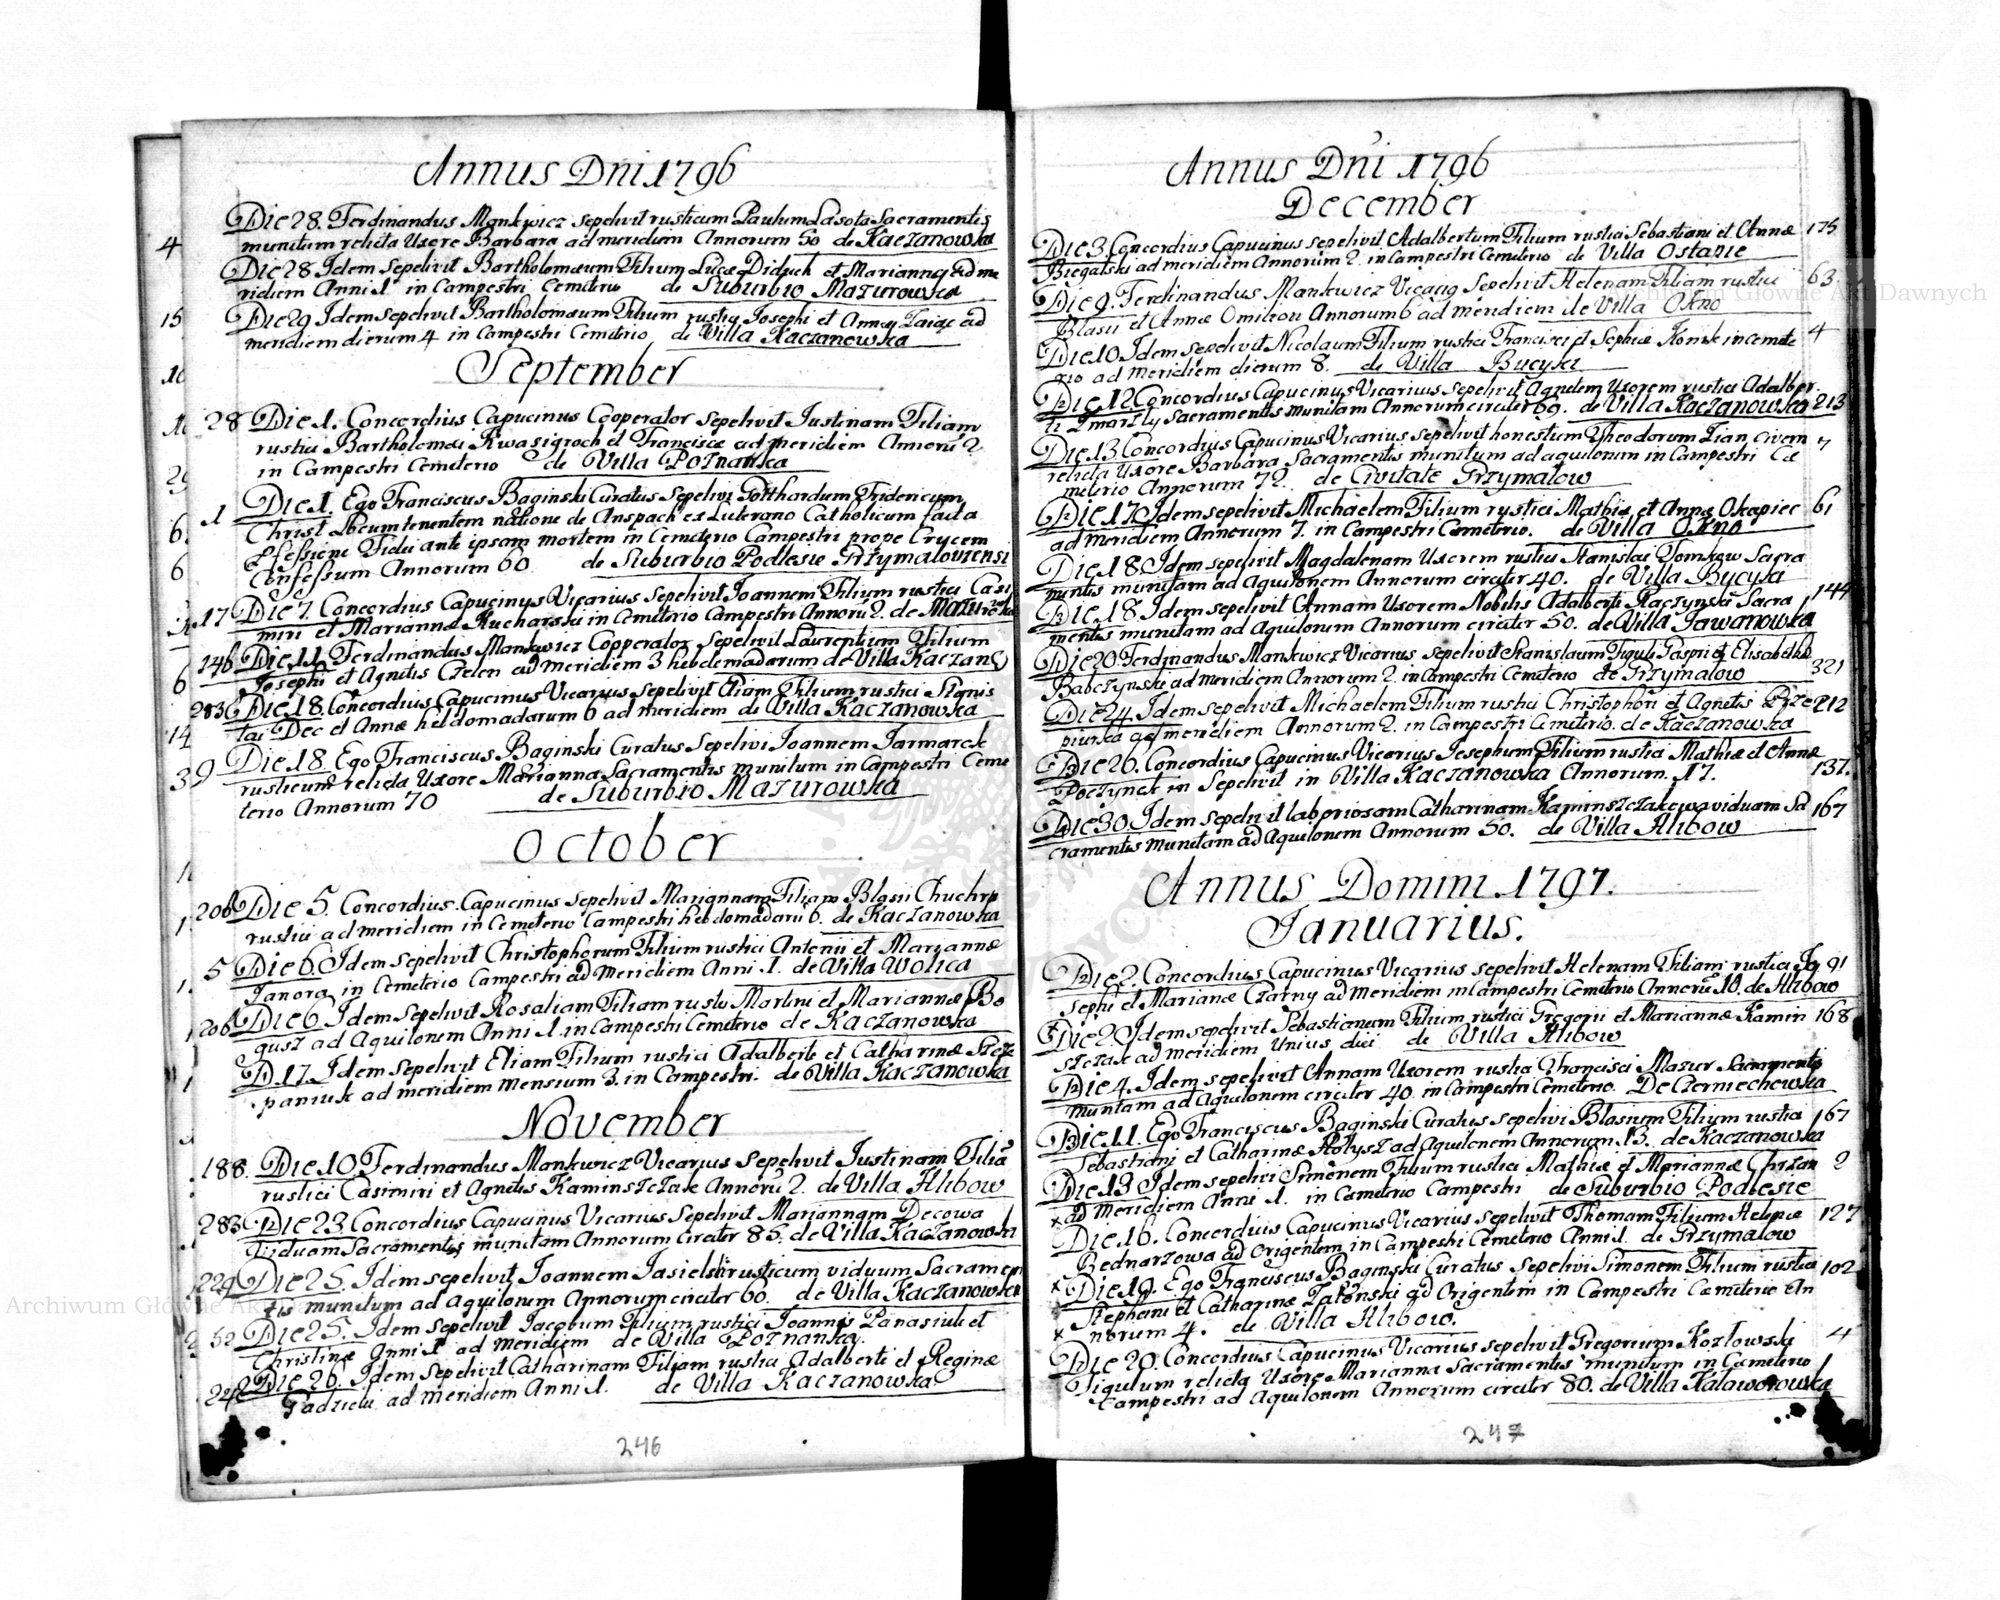 Annus Dni 1796
Die 28. Ferdinandus Mankwicz sepelivit rusticum Paulum Lasota Sacramentis
4 munitum relicta Uxore Barbara ad meridiem Annorum 50 de Kaczanowka
Die 28 Idem sepelivit Bartholomæum Filium Lucæ Didych et Mariannæ ad me
ridiem Anni 1 in Campestri Cemeterio de Suburbio Mazurowka
15 Die 29 Idem sepelivit Bartholomæum Filium rustici Josephi et Annæ Zaiąc ad
meridiem dierum 4 in Campestri Cemitrio, de Villa Kaczanowka
September
28 Die 1. Concordius Capucinus Cooperator sepelivit Iustinam Filiam
rustici Bartholomæi Kwasigroch et Franciscæ ad meridiem Annorū 2
in Campestri Cemeterio de Villa Poznanka
1 Die 1. Ego Franciscus Baginski Curatus sepelivi Gotthardum Fridericum
Christ Locumtenentem natione de Anspach ex Luterano Catholicum facta
Pfessione Fidei ante ipsam mortem in Cemeterio Campestri prope Crucem
Confessum Annorum 60 de Suburbio Podlesie Grzymaloviensi
17 Die 7. Concordius Capucinus Vicarius sepelivit Joannem Filium rustici Casi
miri et Mariannæ Kucharski in Cemiterio Campestri Annorū 2. de
146 Die 11. Ferdinandus Mankwicz Cooperator sepelivit Laurentium Filium
Josephi et Agnetis Czelen ad meridiem 3 hebdomadarum de Villa Kaczano
283 Die 18 Concordius Capucinus Vicarius sepelivit Filium rustici
Dec et Annæ hebdomadarum 6 ad meridiem de Villa Kaczanowka
39 Die 18. Ego Franciscus Baginski Curatus sepelivi Joannem Jarmarek
rusticum relicta Uxore Marianna Sacramentis munitum in Campestri Ceme
terio Annorum 70 de Suburbio Mazurowka
October
206 Die 5. Concordius Capucinus sepelivit Mariannam Filiam Blasii
rustici ad meridiem in Cemeterio Campestri hebdomadarū 6. de Kaczanowka
5 Die 6. Idem sepelivit Christophorum Filium rustici Antonii et Mariannæ
Janora in Cemeterio Campestri ad Meridiem Anni 1. de Villa Wolica
206 Die 6 Idem sepelivit Rosaliam Filiam rustici Martini et Mariannæ Bo
gusz ad Aquilonem Anni 1. in Campestri Cemeterio de Kaczanowka
D 17. Idem sepelivit Eliam Filium rustici Adalberti et Catharinæ
paniuk ad meridiem mensium 3. in Campestri. de Villa Kaczanowka
November
188. Die 10. Ferdinandus Mankwicz Vicarius sepelivit Justinam Filiā
rustici Casimiri et Agnetis Kaminszczak Annorū 2. de Villa Hlibow
283 Die 23 Concordius Capucinus Vicarius sepelivit Mariannam Decowa
Viduam Sacramentis munitam Annorum circiter 85. de Villa Kaczanowka
229 Die 25. Idem sepelivit Joannem Jasielski rusticum viduum Sacramen
tis munitum ad Aquilonem Annorum circiter 60. de Villa Kaczanowka
52 Die 25. Idem sepelivit Jacobum Filium rustici Joannis Panasiuk et
Christinæ Anni 1 ad meridiem de Villa Poznanka.
Die 26. Idem sepelivit Catharinam Filiam rustici Adalberti et Reginæ
Gadzicki ad meridiem Anni 1. de Villa Kaczanowka
246
Annus Dni 1796
December
Die 3. Concordius Capucinus sepelivit Adalbertum Filium rustici Sebastiani et Annæ 175
Biegalski ad meridiem Annorum 2. in Campestri Cemeterio de Villa Ostapie
Die 9. Ferdinandus Mankwicz Vicarius sepelivit Helenam Filiam rustici 63
Blasii et Annæ Omilion Annorum 6 ad meridiem de Villa Okno
Die 10 Idem sepelivit Nicolaum Filium rustici Francisci et Sophiæ Konik in ceme 4
rio ad meridiem dierum 8. de Villa Bucyki
Die 12 Concordius Capucinus Vicarius sepelivit Agnetem Uxorem rustici Adalber
ti Sacramentis munitam Annorum circiter 69. de Villa Kaczanowka 213
Die 13 Concordius Capucinus Vicarius sepelivit honestum Theodorum Lian, civem 7
relicta Uxore Barbara Sacramentis munitum ad aquilonem in Campestri Cæ
meterio Annorum 72. de Civitate Grzymalow
Die 17 Idem sepelivit Michaelem Filium rustici Mathiæ et Annæ Okopiec 61
ad meridiem Annorum 7. in Campestri Cemeterio. de Villa Okno
Die 18 Idem sepelivit Magdalenam Uxorem rustici Stanislai Tomkow Sacra
mentis munitam ad Aquilonem Annorum circiter 40. de Villa Bucyki
Die 18. Idem sepelivit Annam Uxorem Nobilis Adalberti Raczynski Sacra 144
mentis munitam ad Aquilonem Annorum circiter 50. de Villa
Die 20. Ferdinandus Mankwicz Vicarius sepelivit Stanislaum Figuli Caspri et Elisabethæ
Babczynski ad meridiem Annorum 2. in Campestri Cemeterio de Grzymalow 321
Die 24. Idem sepelivit Michaelem Filium rustici Christophori et Agnetis Prze 212
piurka ad meridiem Annorum 2. in Campestri Cemeterio. de Kaczanowka
Die 26. Concordius Capucinus Vicarius Josephum Filium rustici Mathiæ et Annæ
Poczynek in sepelivit in Villa Kaczanowka Annorum. 17. 137.
Die 30. Idem sepelivit laboriosam Catharinam Kaminszczakowa viduam Sa 167
cramentis munitam ad Aquilonem Annorum 50. de Villa Hlibow
Annus Domini 1797.
Januarius.
Die 2. Concordius Capucinus Vicarius sepelivit Helenam Filiam rustici Jo 91
sephi et Marianæ Czarny ad Meridiem in Campestri Cemeterio Annorū 10. de Hlibow
Die 2. Idem sepelivit Sebastianum Filium rustici Gregorii et Mariannæ Kamin 168
szczak ad meridiem unius diei de Villa Hlibow
Die 4. Idem sepelivit Annam Uxorem rustici Francisci Mazur Sacramentis
munitam ad Aquilonem circiter 40. in Campestri Cemeterio. De Czerniechowka
Die 11. Ego Franciscus Baginski Curatus sepelivi Blasium Filium rustici 167
Sebastiani et Catharinæ Holysz ad Aquilonem Annorum 13. de Kaczanowka
Die 13 Idem sepelivi Simonem Filium rustici Mathiæ et Mariannæ Chrzan 2
ad meridiem Anni 1. in Cemeterio Campestri de Suburbio Podlesie
Die 16. Concordius Capucinus Vicarius sepelivit Thomam Filium Helenæ 127
Bednarzowa ad Origentem in Campestri Cemeterio Anni 1. de Grzymalow
Die 19. Ego Franciscus Baginski Curatus sepelivi Simonem Filium rustici 102
Stephani et Catharinæ Zatonski ad Origentem in Campestri Cæmiterio An
norum 4. de Villa Hlibow.
Die 20. Concordius Capucinus Vicarius sepelivit Gregorium Kozlowski 4
Figulum relicta Uxore Marianna Sacramentis munitum in Cameterio
Campestri ad Aquilonem Annorum circiter 80. de Villa Kalaworowka
247
Archiwum Główne Akt Dawnych
Archiwum Główne Akt Dawnych